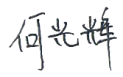 何光辉